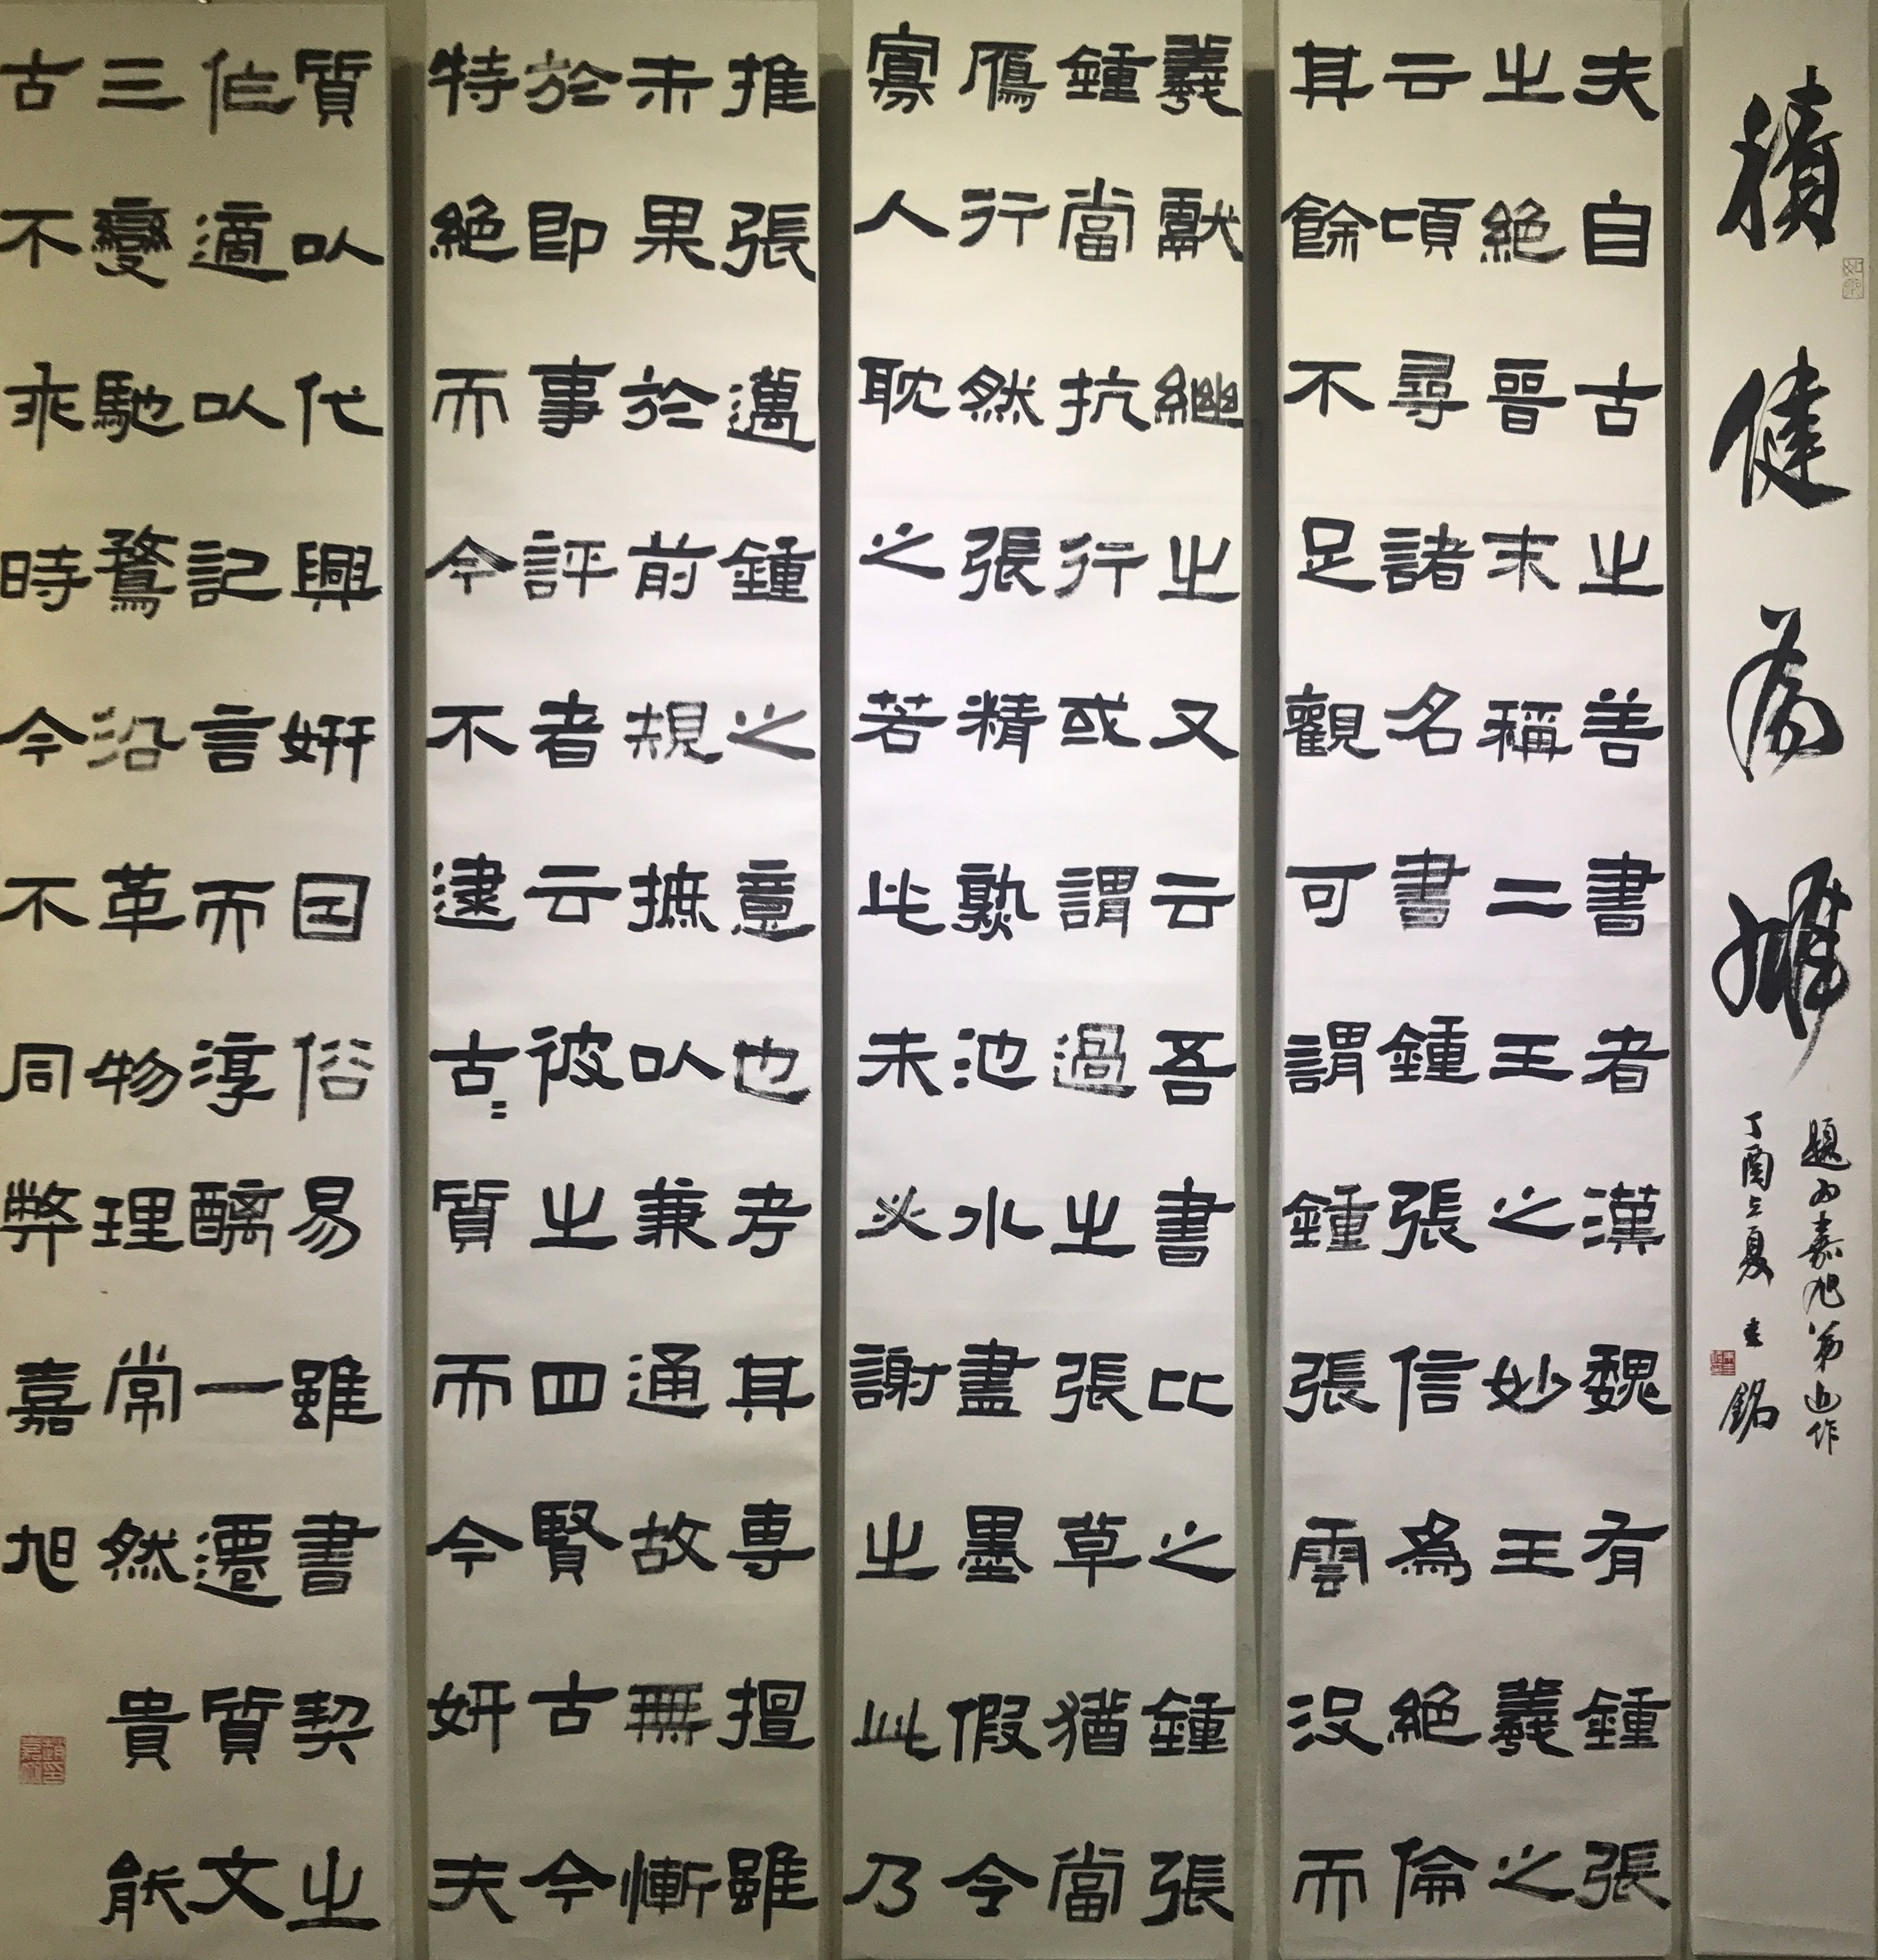 積健為雄
題為嘉旭弟近作
丁酉立夏 銘
夫自古之善書者漢魏有鍾張
之絕晉末稱二王之妙王羲之
云頃尋諸名書鍾張信為絕倫
其餘不足觀可謂鍾張雲沒而
羲獻繼之又云吾書比之鍾張
鍾當抗行或謂過之張草猶當
鴈行然張精熟池水盡墨假令
寡人耽之若此未必謝之此乃
推張邁鍾之意也考其專擅雖
未果於前規摭以兼通故無慚
於即事評者云彼之四賢古今
特絕而今不逮古〻質而今妍夫
質以代興妍因俗易雖書契之
作適以記言而淳醨一遷質文
三變馳騖沿革物理常然貴能
古不乖時今不同弊嘉旭